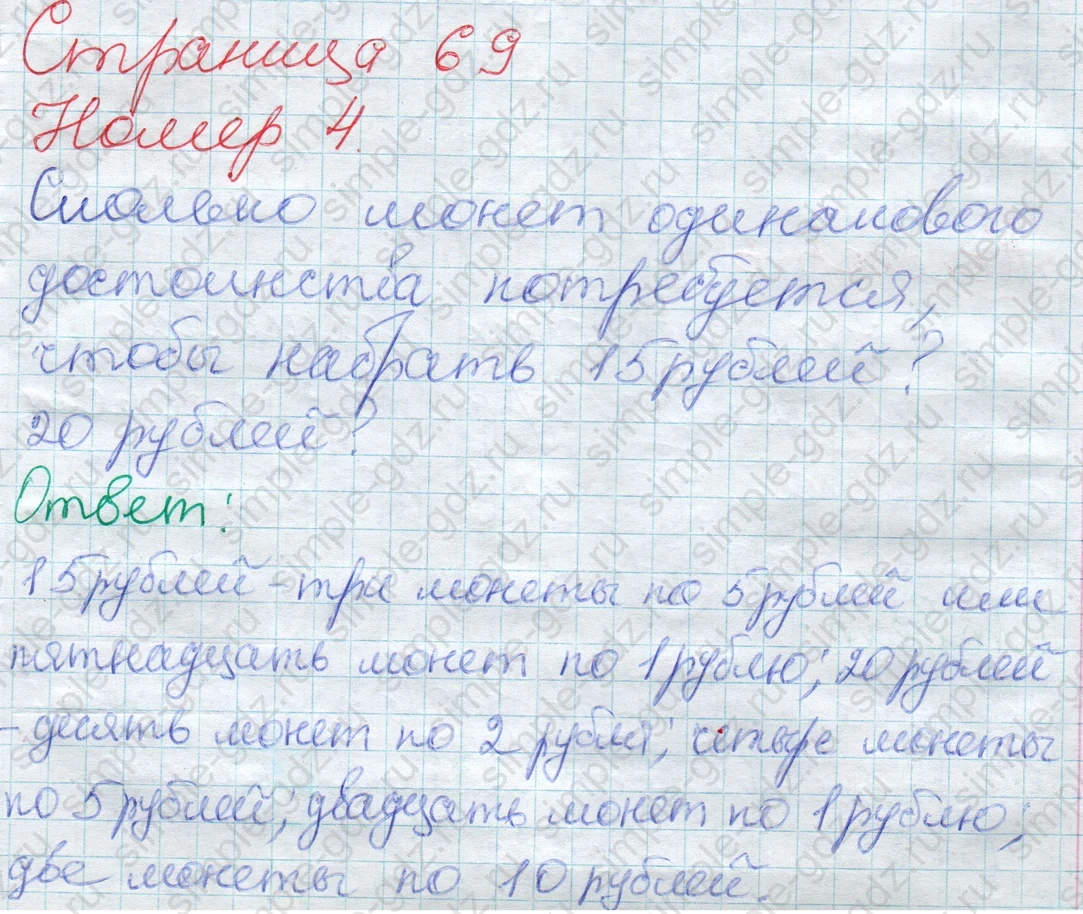 Страница 69
Номер 4.
Сколько монет одинакового
достоинства потребуется,
чтобы набрать 15 рублей?
20 рублей?
Ответ:
15 рублей - три монеты по 5 рублей или
пятнадцать монет по 1 рублю; 20 рублей
- десять монет по 2 рубля; четыре монеты
по 5 рублей; двадцать монет по 1 рублю;
две монеты по 10 рублей.
simple-gdz.ru